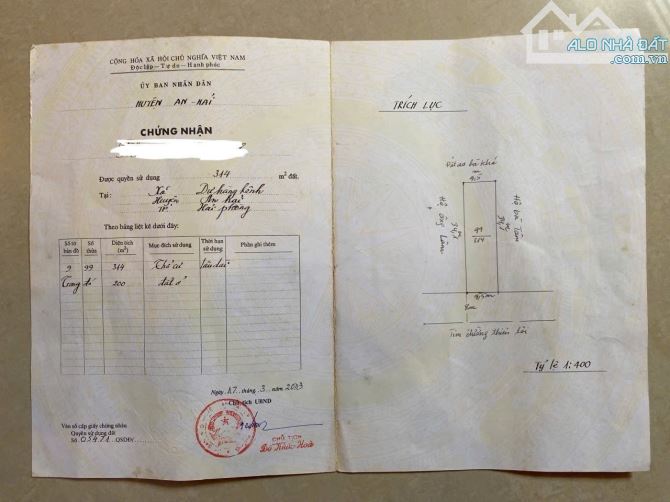 CỘNG HÒA XÃ HỘI CHỦ NGHĨA VIỆT NAM
Độc lập - Tự do - Hạnh phúc
ỦY BAN NHÂN DÂN
HUYỆN AN - HẢI
CHỨNG NHẬN
Được quyền sử dụng 314 m² đất.
Tại: Xã Dư hàng kênh
Huyện An Hải
TP. Hải phòng
Theo bảng liệt kê dưới đây:
Số tờ bản đồ Số thửa Diện tích (m²) Mục đích sử dụng Thời hạn sử dụng Phần ghi thêm
2 99 314 Thổ cư lâu dài
Trong đó 200 đất ở
Ngày 17 tháng 3 năm 2003
Chủ tịch UBND
CHỦ TỊCH
Vào sổ cấp giấy chứng nhận
Quyền sử dụng đất
Số QSDĐ/
ALO NHÀ ĐẤT
.com.vn
TRÍCH LỤC
Đất ao bà Khá
9,5
Hộ ông Lâm
34,9 m
Hộ bà Tâm
99
314
9,5m
8m
Tim đường Thiên lôi
Tỷ lệ 1:400